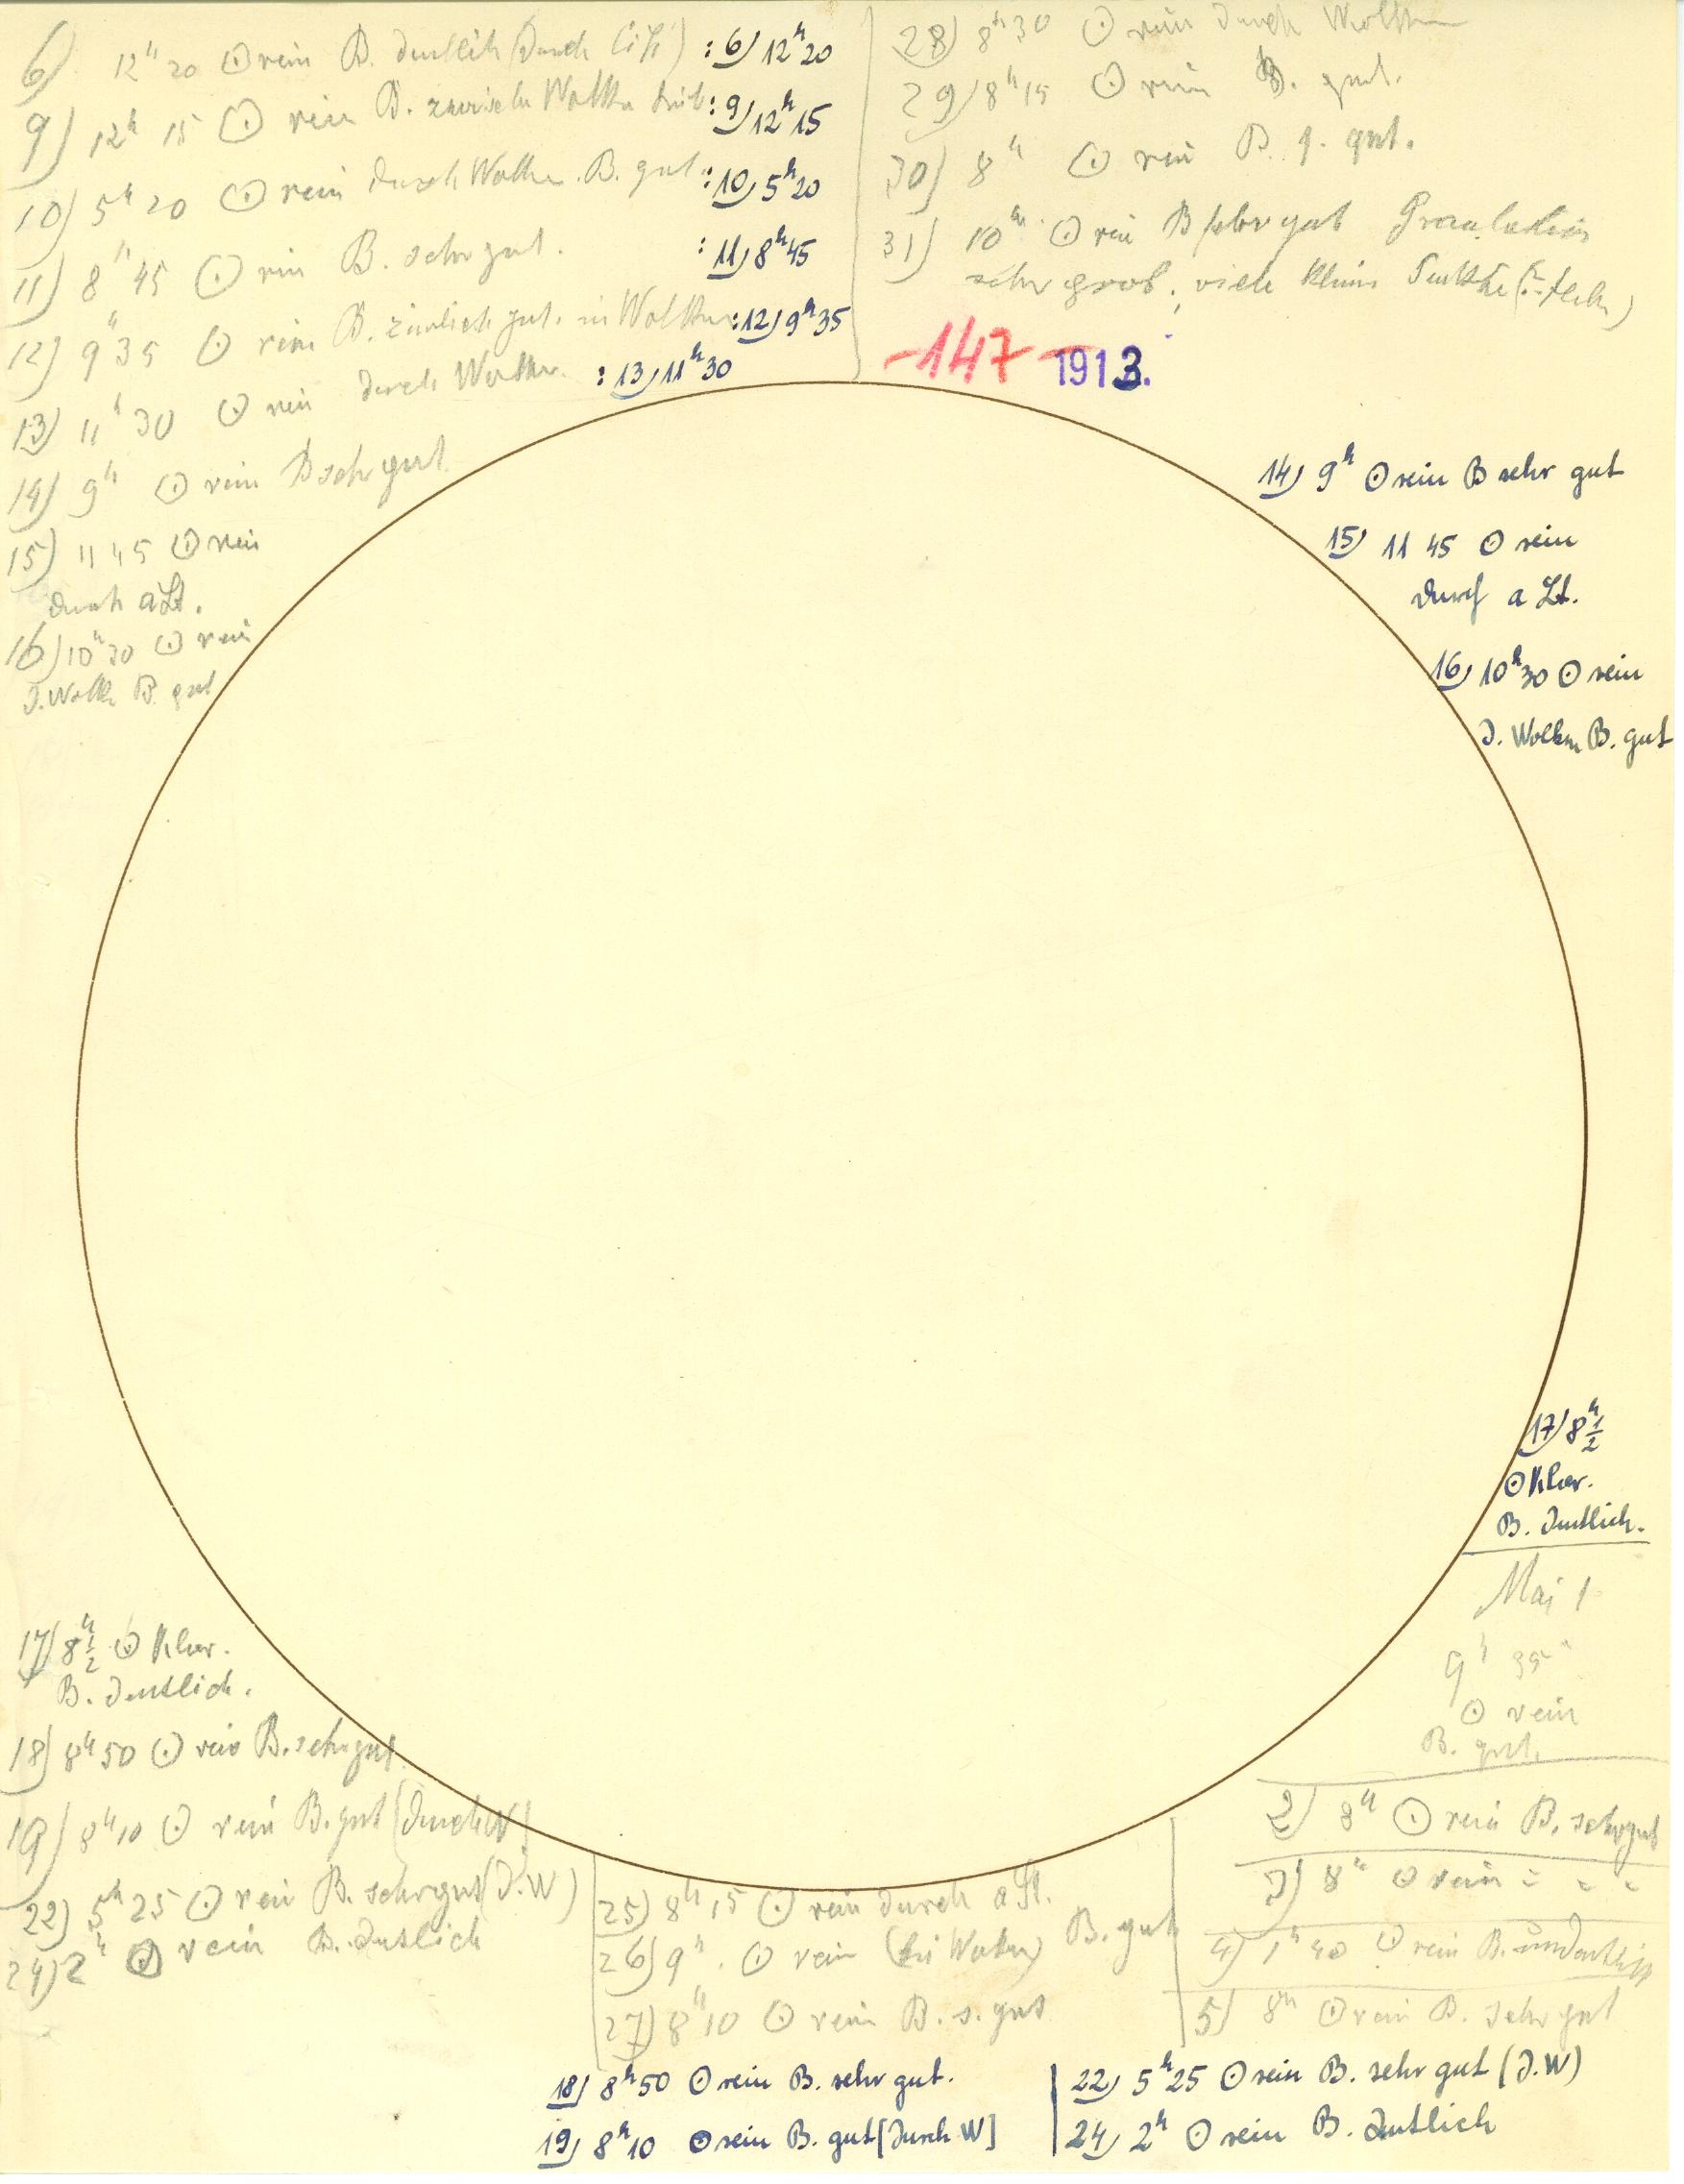 6) 12h 20 ⊙ rein B. deutlich (durch Ci Str) : 6) 12h 20
9) 12h 15 ⊙ rein B. zwischen Wolken trüb : 9) 12h 15
10) 5h 20 ⊙ rein durch Wolken. B. gut : 10) 5h 20
11) 8h 45 ⊙ rein B. sehr gut. : 11) 8h 45
12) 9h 35 ⊙ rein B. ziemlich gut. in Wolken : 12) 9h 35
13) 11h 30 ⊙ rein durch Wolken. : 13) 11h 30
14) 9h ⊙ rein B sehr gut
15) 11 45 ⊙ rein
durch a St.
16) 10h 30 ⊙ rein
d. Wolk B. gut
28) 8h 30 ⊙ rein durch Wolken
29) 8h 15 ⊙ rein B. gut.
30) 8h ⊙ rein B. s. gut.
31) 10h ⊙ rein B sehr gut Granulation
sehr grob; viele kleine
147 1913.
14) 9h ⊙ rein B sehr gut
15) 11 45 ⊙ rein
durch a St.
16) 10h 30 ⊙ rein
d. Wolken B. gut
17) 8h 1/2
⊙ klar.
B. deutlich.
Mai 1
9h 35m
⊙ rein
B. gut.
2) 8h ⊙ rein B. sehr gut
3) 8h ⊙ rein " " "
4) 1h 40 ⊙ rein B. undeutlich
5) 8h ⊙ rein B. sehr gut
17) 8h 1/2 ⊙ klar.
B. deutlich.
18) 8h 50 ⊙ rein B. sehr gut.
19) 8h 10 ⊙ rein B. gut [durch W]
22) 5h 25 ⊙ rein B. sehr gut (d. W)
24) 2h ⊙ rein B. deutlich
25) 8h 15 ⊙ rein durch a St.
26) 9h. ⊙ rein (bei Wolken) B. gut
27) 8h 10 ⊙ rein B. s. gut
18) 8h 50 ⊙ rein B. sehr gut.
19) 8h 10 ⊙ rein B. gut [durch W]
22) 5h 25 ⊙ rein B. sehr gut (d. W)
24) 2h ⊙ rein B. deutlich